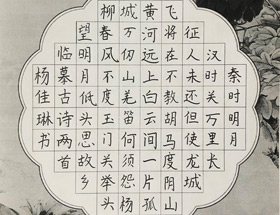 秦时明月
汉时关万里长
征人未还但使龙城
飞将在不教胡马度阴山
黄河远上白云间一片孤
城万仞山羌笛何须怨杨
柳春风不度玉门关举头
望明月低头思故乡
临摹古诗两首
杨佳琳书